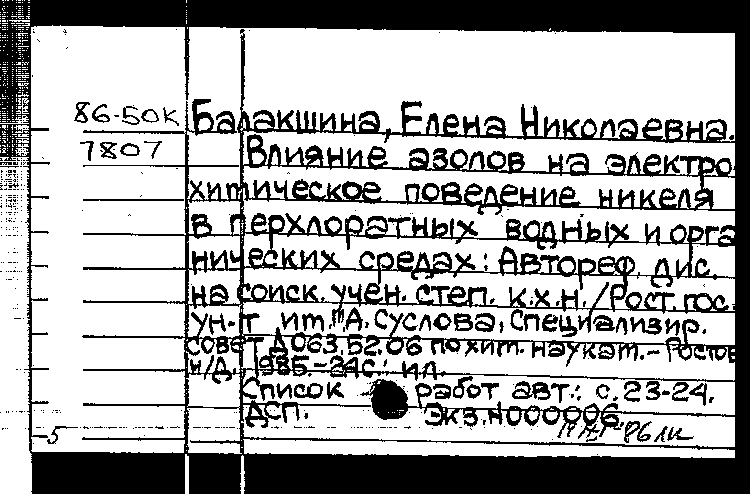 86-50К Балакшина, Елена Николаевна.
7807 Влияние азолов на электро
химическое поведение никеля
в перхлоратных водных и орга
нических средах: Автореф. дис.
на соиск. учен. степ. к.х.н. /Рост. гос.
ун-т им. М.А. Суслова, Специализир.
совет Д 063.52.06 по хим. наукам.- Ростов
н/Д, 1985.-24с.: ил.
Список работ авт.: с. 23-24.
ДСП. Экз. N000006.
-5 86